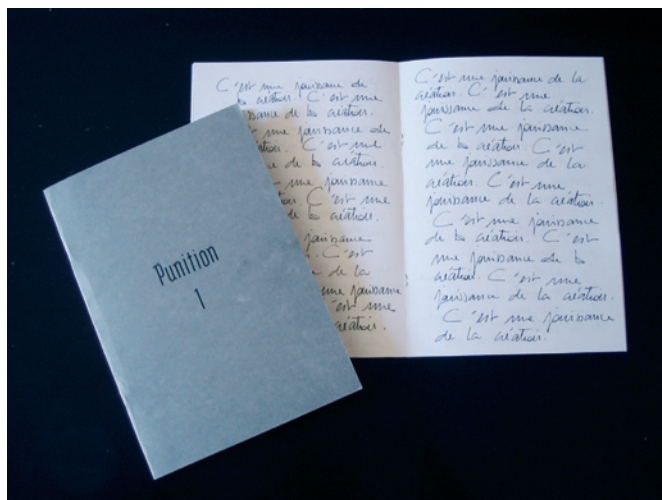 Punition
1
C'est une jouissance de
la création. C'est une
jouissance de la création.
une jouissance de
création. C'est une
de la création.
une jouissance
C'est une
de la création.
jouissance
C'est
de la
une jouissance
C'est une
création.
C'est une jouissance de la
création. C'est une
jouissance de la création.
C'est une jouissance
de la création. C'est
une jouissance de la
création. C'est une
jouissance de la création.
C'est une jouissance
de la création. C'est
une jouissance de la
création. C'est une
jouissance de la création.
C'est une jouissance
de la création.